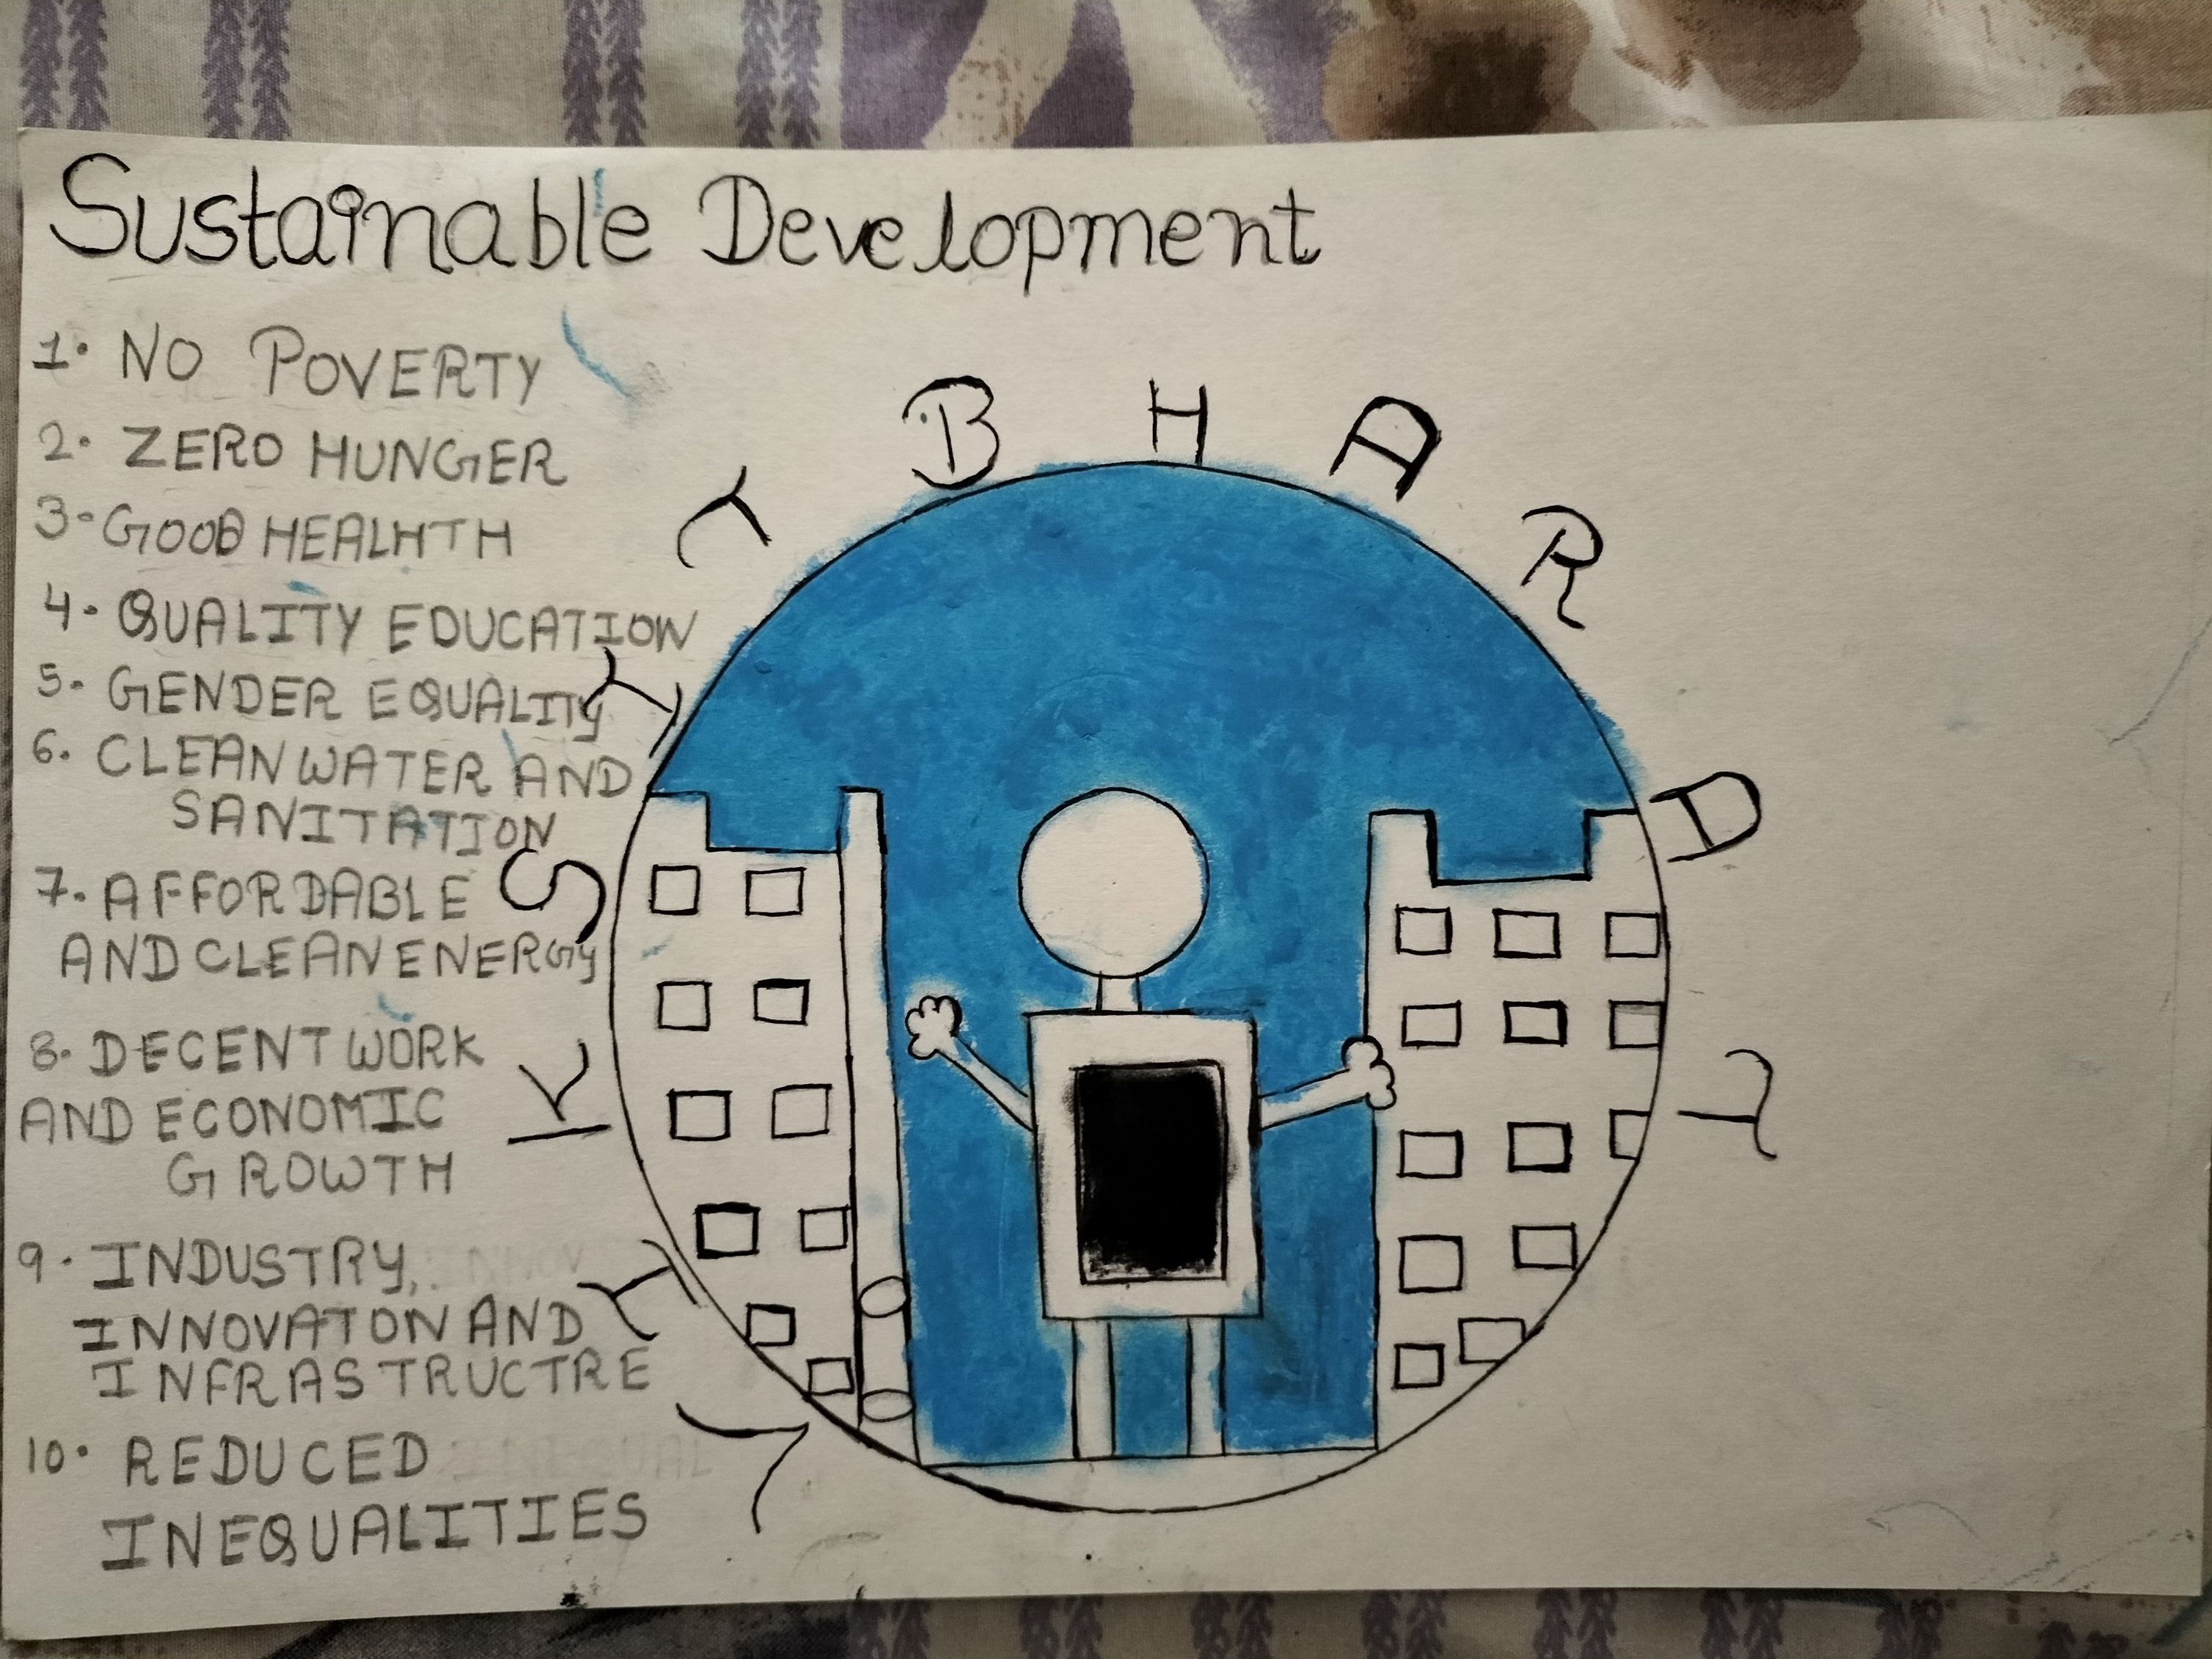 Sustainable Development
1. NO POVERTY
2. ZERO HUNGER
3- GOOD HEALHTH
4- QUALITY EDUCATION
5- GENDER EQUALITY
6. CLEAN WATER AND
SANITATION
7. AFFORDABLE
AND CLEAN ENERGY
8- DECENT WORK
AND ECONOMIC
GROWTH
9. INDUSTRY,
INNOVATON AND
INFRASTRUCTRE
10. REDUCED
INEQUALITIES
VIKSIT BHARAT